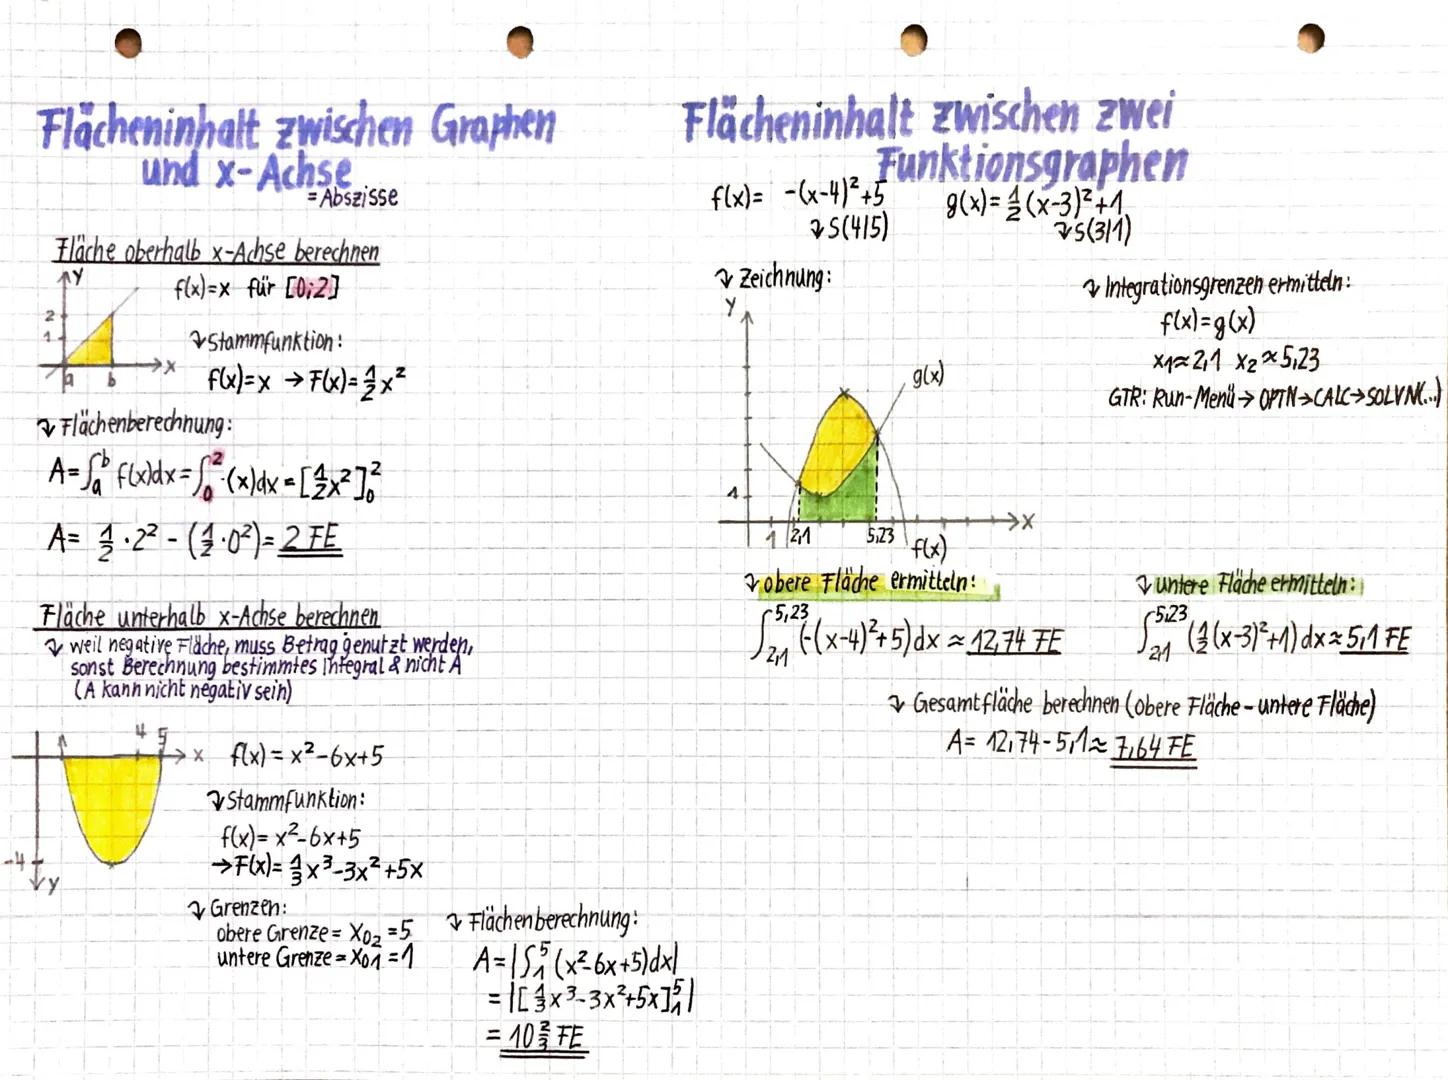 Flächeninhalt zwischen Graphen
und x-Achse
= Abszisse
Fläche oberhalb x-Achse berechnen
y
f(x)=x für [0;2]
2
1
a b x
↴ Stammfunktion:
f(x)=x → F(x)= 1/2 x²
↴ Flächenberechnung:
A=∫ₐᵇ f(x)dx = ∫₀² (x)dx = [1/2 x²]₀²
A= 1/2 · 2² - (1/2 · 0²) = 2 FE
Fläche unterhalb x-Achse berechnen
↴ weil negative Fläche, muss Betrag genutzt werden,
sonst Berechnung bestimmtes Integral & nicht A
(A kann nicht negativ sein)
4 5 x
-4
y
f(x) = x²-6x+5
↴ Stammfunktion:
f(x)= x²-6x+5
→ F(x)= 1/3 x³-3x²+5x
↴ Grenzen:
obere Grenze = x₀₂ = 5
untere Grenze = x₀₁ = 1
↴ Flächenberechnung:
A= |∫₁⁵ (x²-6x+5)dx|
= |[1/3 x³-3x²+5x]₁⁵|
= 10 2/3 FE
Flächeninhalt zwischen zwei
Funktionsgraphen
f(x)= -(x-4)²+5 g(x)= 1/2 (x-3)²+1
↴ S(4|5) ↴ S(3|1)
↴ Zeichnung:
y
g(x)
1
x
1 2,1 5,23 f(x)
↴ Integrationsgrenzen ermitteln:
f(x)=g(x)
x₁≈2,1 x₂≈5,23
GTR: Run-Menü → OPTN → CALC → SOLVN(...)
↴ obere Fläche ermitteln:
∫₂,₁⁵,²³ (-(x-4)²+5)dx ≈ 12,74 FE
↴ untere Fläche ermitteln:
∫₂,₁⁵,²³ (1/2 (x-3)²+1)dx ≈ 5,1 FE
↴ Gesamtfläche berechnen (obere Fläche - untere Fläche)
A= 12,74-5,1 ≈ 7,64 FE